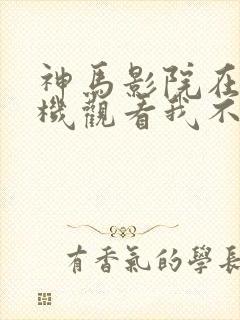 神馬影院在
機觀看我不
有香氣的學長